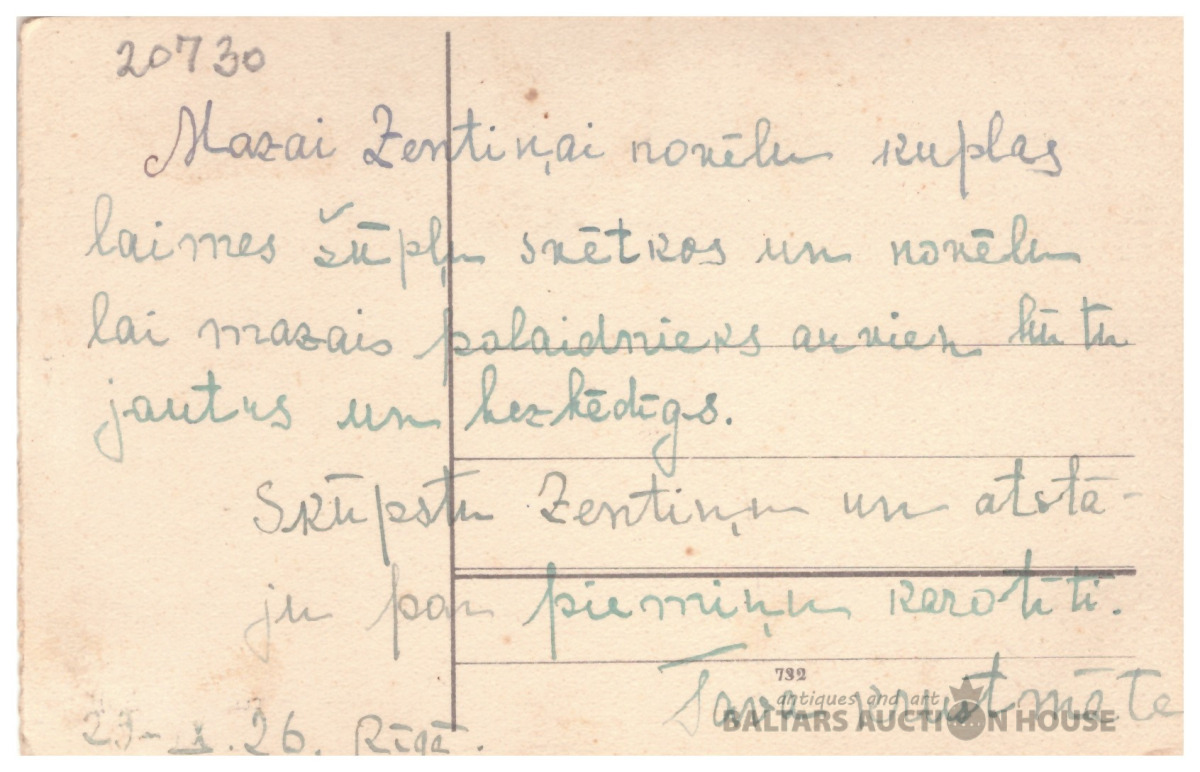 20730
Mazai Zentiņai novēlu kuplas
laimes šūpļu svētkos un novēlu
lai mazais palaidnieks arvien būtu
jautrs un bezbēdīgs.
Skūpstu Zentiņu un atstā-
ju par piemiņu karotīti.
732
Tava
antiques and art
BALTARS AUCTION HOUSE
26. Rīgā.